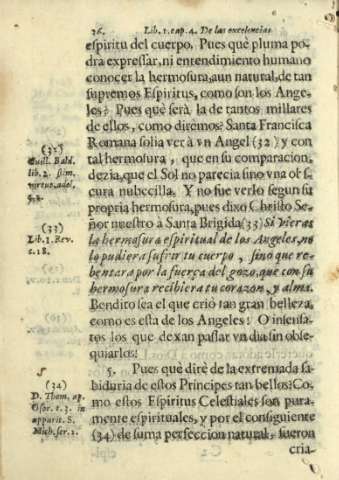 36. Lib. 1. cap. 4. De las excelencias
espiritu del cuerpo. Pues què pluma po-
drà expressar, ni entendimiento humano
conocer la hermosura, aun natural, de tan
supremos Espiritus, como son los Ange-
les? Pues què serà la de tantos millares
de ellos, como diremos? Santa Francisca
Romana solia ver à vn Angel (32) y con
tal hermosura, que en su comparacion,
dezia, que el Sol no parecia sino vna obs-
cura nubecilla. Y no fue verlo segun su
propria hermosura, pues dixo Christo Se-
ñor nuestro à Santa Brigida (33) Si vieras
la hermosura espiritual de los Angeles, no
lo pudiera sufrir tu cuerpo, sino que re-
bentara por la fuerça del gozo, que con su
hermosura recibiera tu corazon, y alma.
Bendito sea el que criò tan gran belleza,
como es esta de los Angeles! O insensa-
tos los que dexan passar vn dia sin obse-
quiarlos!
5. Pues què dirè de la extremada sa-
biduria de estos Principes tan bellos? Co-
mo estos Espiritus Celestiales son pura-
mente espirituales, y por el consiguiente
(34) de suma perfeccion natural, fueron
cria-
(32)
Guill. Bald.
lib. 2.
(33)
Lib. 1. Rev.
c. 18.
5
(34)
D. Thom. ap.
Osor. t. 3. in
apparit. S.
Mich. ser. 1.